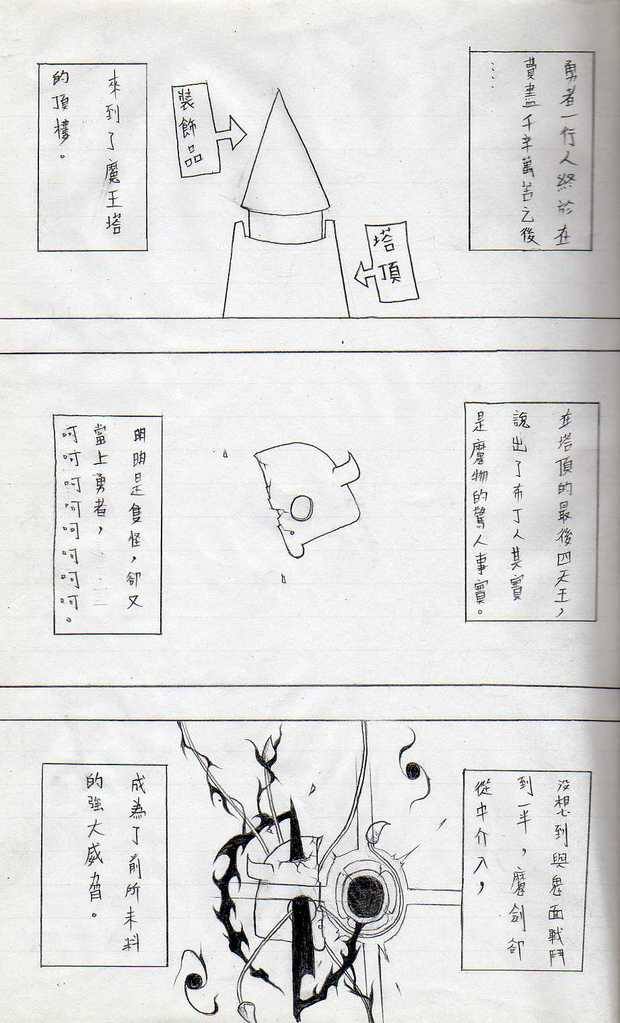 勇者一行人終於在
費盡千辛萬苦之後
⋯⋯
裝飾品
塔頂
來到了魔王塔
的頂樓。
在塔頂的最後四天王，
說出了布丁人其實
是魔物的驚人事實。
明明是隻怪，卻又
當上勇者，
呵呵呵呵呵呵呵。
沒想到與鬼面戰鬥
到一半，魔劍卻
從中介入，
成為了前所未料
的強大威脅。